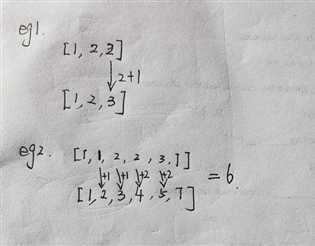 eg1.
[1, 2, 2]
↓2+1
[1, 2, 3]
eg2. [1, 1, 2, 2, 3, 7]
↓+1 ↓+1 ↓+2 ↓+2
[1, 2, 3, 4, 5, 7] = 6.